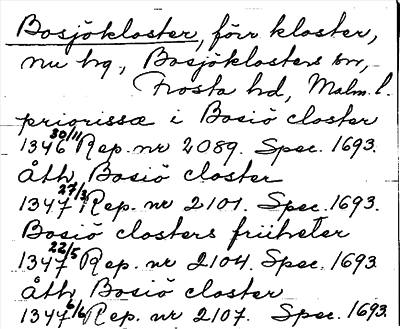 Bosjökloster, förr kloster,
nu hg, Bosjöklosters sn,
Frosta hd, Malm. l.
priorissæ i Bosiö closter
1346 30/11 Rep. nr 2089. Spec. 1693.
Åth Bosiö closter
1347 27/3 Rep. nr 2101. Spec. 1693.
Bosiö closters friiheter
1347 22/5 Rep. nr 2104. Spec. 1693.
Åth Bosiö closter
1347 6/6 Rep. nr 2107. Spec. 1693.